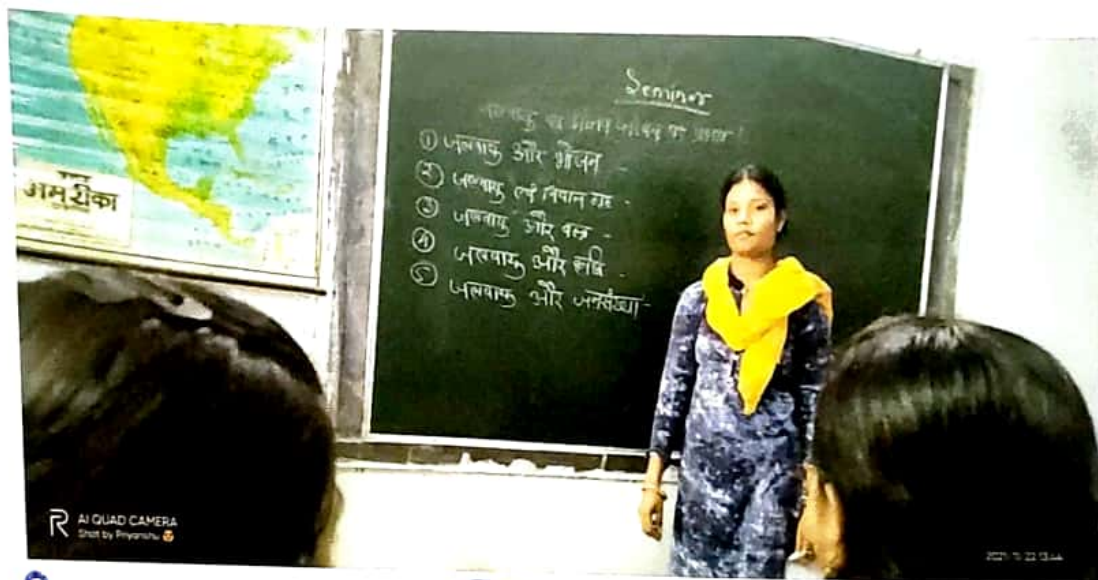 उत्तर
अमरीका
Seminar
जलवायु का मानव जीवन पर प्रभाव !
① जलवायु और भोजन -
② जलवायु एवं निवास गृह -
③ जलवायु और वस्त्र -
④ जलवायु और कृषि -
⑤ जलवायु और जनसंख्या -
R AI QUAD CAMERA
Shot by Priyanshu 😍
2021/11/22 13:44